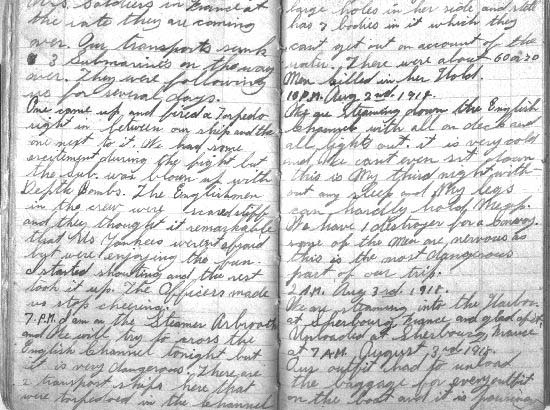 U.S. Soldiers in France at
the rate they are coming
over. Our transports sunk
3 Submarines on the way
over. They were following
us for several days.
One came up and fired a Torpedo
right in between our ship and the
one next to it. We had some
excitement during the fight but
the sub. was blown up with
Depth Bombs. The Englishmen
in the crew were scared stiff
and they thought it remarkable
that Us Yankees werent afraid
but were enjoying the fun.
I started shouting and the rest
took it up. The Officers made
us stop cheering.
7. P.M. I am on the Steamer Arbroath
and We will try to cross the
English Channel tonight but
it is very dangerous. There are
2 transport ships here that
were torpedoed in the Channel
large holes in her side and still
has 7 bodies in it which they
cant get out on account of the
water. There were about 60 or 70
Men killed in her Hold.
10 P.M. Aug 2nd. 1918.
We are Steaming down the English
Channel with all on deck and
all lights out. it is very cold
and We cant even sit down
this is My third night with-
out any sleep and My legs
can hardly hold Me up.
We have 1 destroyer for a convoy.
some of the Men are nervous as
this is the most dangerous
part of our trip.
2 A.M. Aug 3rd. 1918.
We are steaming into the Harbor
at Sherbourg, France and glad of it.
Unloaded at Sherbourg, France
at 7 A.M. August, 3rd, 1918.
Our outfit had to unload
the baggage for every outfit
on the boat and it is pouring